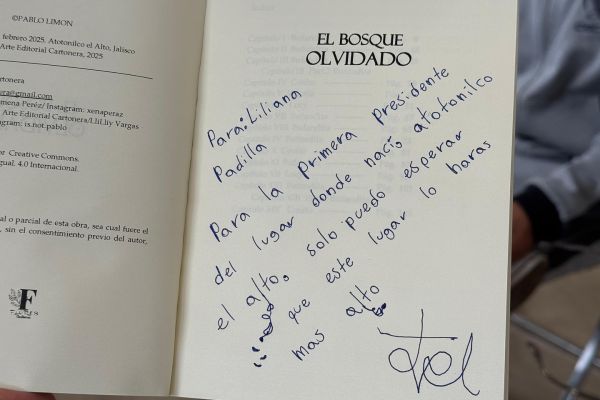 ©PABLO LIMON
febrero 2025. Atotonilco el Alto, Jalisco
Arte Editorial Cartonera, 2025
artonera
@gmail.com
mena Peréz/ Instagram: xenaperaz
Arte Editorial Cartonera/LliLliy Vargas
agram: is.not.pablo
or Creative Commons.
gual. 4.0 Internacional.
al o parcial de esta obra, sea cual fuere el
, sin el consentimiento previo del autor,
F
EL BOSQUE
OLVIDADO
Para: Liliana
Padilla
Para la Primera presidente
del lugar donde nació atotonilco
el alto, solo puedo esperar
que este lugar lo haras
mas alto